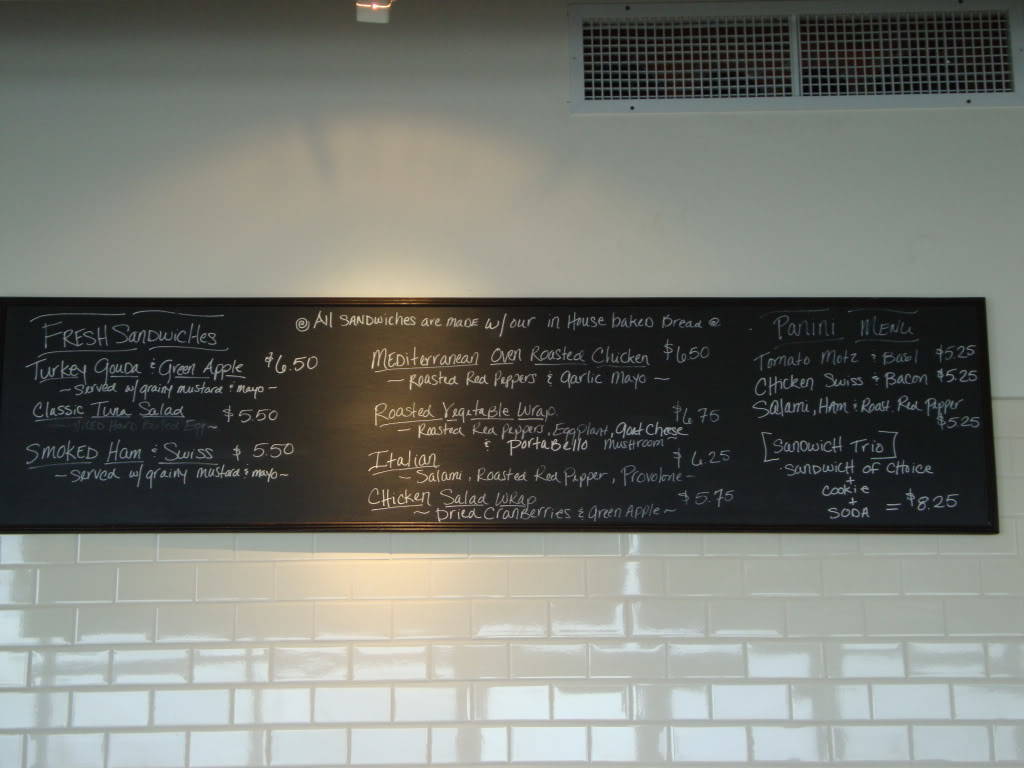 FRESH SANDWICHES
Turkey Gouda & Green Apple $6.50
~ Served w/ grainy mustard & mayo ~
Classic Tuna Salad $5.50
Hard Boiled Egg ~
SMOKED Ham & Swiss $5.50
~ Served w/ grainy mustard & mayo ~
@ All SANDWICHes are MADE w/ our in House baked Bread @
MEDiterranean Oven Roasted Chicken $6.50
~ Roasted Red Peppers & Garlic Mayo ~
Roasted Vegetable Wrap $6.75
~ Roasted Red Peppers, Eggplant, goat Cheese
& PORTABello mushroom ~
Italian $6.25
~ Salami, Roasted Red Pepper, Provolone ~
Chicken Salad Wrap $5.75
~ Dried CranBerries & Green Apple ~
Panini Menu
Tomato Motz & Basil $5.25
Chicken Swiss & Bacon $5.25
Salami, Ham & Roast. Red Pepper
$5.25
[Sandwich Trio]
Sandwich of Choice
+
Cookie
+
SODA = $8.25